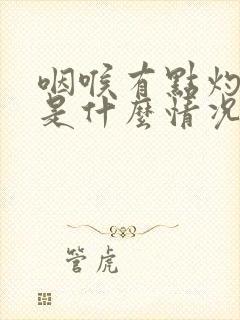 咽喉有點灼
是什麼情況
管虎